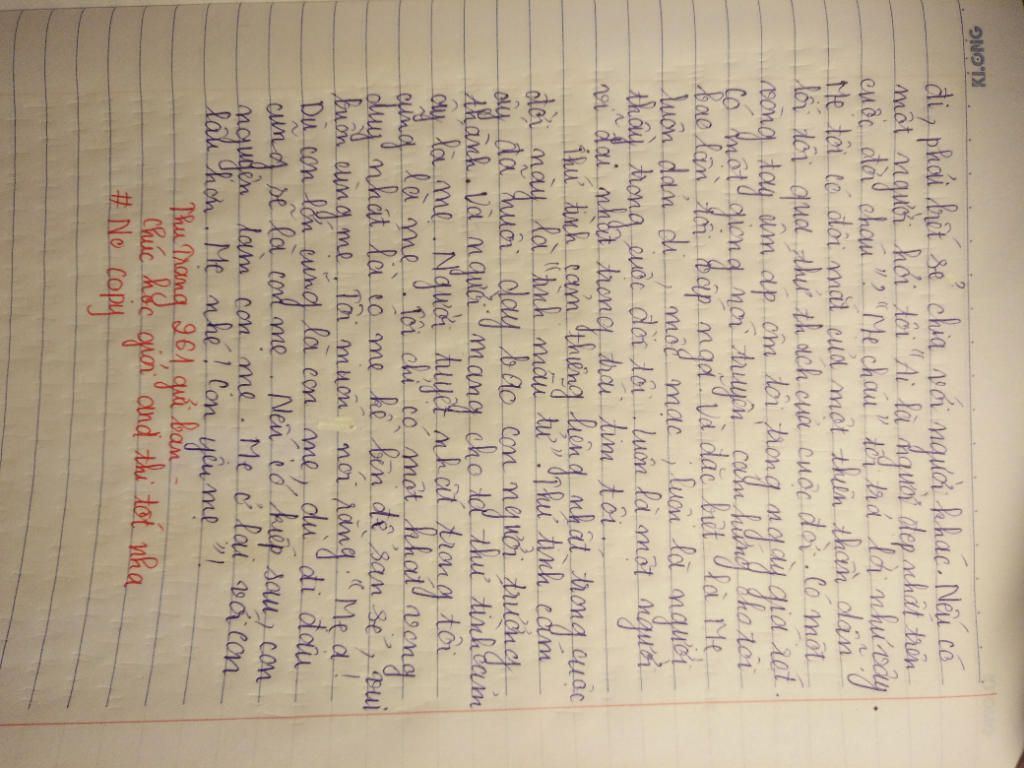 KLONG
đi, phải biết sẻ chia với người khác. Nếu có
một người hỏi tôi "Ai là người đẹp nhất trên
cuộc đời cháu", "Mẹ cháu" tôi trả lời như vậy
Mẹ tôi có đôi mắt của một thiên thần dẫn
lối tôi qua thử thách của cuộc đời. Có một
vòng tay ấm áp ôm tôi trong ngày giá rét.
Có một giọng nói truyền cảm hứng cho tôi
bao lần tôi vấp ngã. Và đặc biệt là Mẹ
luôn đản dị, mộc mạc, luôn là người
thầy trong cuộc đời tôi, luôn là một người
vĩ đại nhất trong trái tim tôi.
Thứ tình cảm thiêng liêng nhất trong cuộc
đời này là "tình mẫu tử". Thứ tình cảm
ấy đã nuôi dạy bao con người trưởng
thành. Và người mang cho tớ thứ tình cảm
ấy là mẹ. Người tuyệt nhất trong tôi
cũng là mẹ. Tôi chỉ có một khát vọng
duy nhất là có mẹ kề bên để san sẻ, vui
buồn cùng mẹ. Tôi muốn nói rằng "Mẹ ạ!
Dù con lớn cũng là con mẹ, dù đi đâu
cũng sẽ là con mẹ. Nếu có kiếp sau, con
nguyện làm con mẹ. Mẹ ở lại với con
lâu hơn. Mẹ nhé! Con yêu mẹ"!
Thu Trang 261 gửi bạn
Chúc học giỏi and thi tốt nha
# No copy